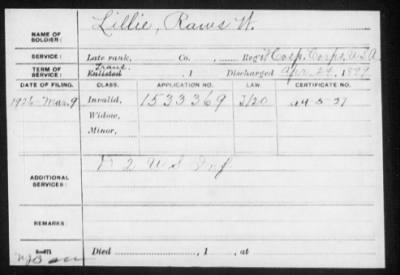 NAME OF SOLDIER: Lillie, Raws W.
SERVICE: Late rank, Co. , Reg't Hosp. Corps, U.S.A.
TERM OF SERVICE: Enlisted , 1 Discharged Apr. 29, 1899
DATE OF FILING. CLASS. APPLICATION NO. LAW. CERTIFICATE NO.
1926 Mar. 9 Invalid, 1533369 3/20
Widow,
Minor,
ADDITIONAL SERVICES: 2 U S Inf
REMARKS:
Died , 1 , at